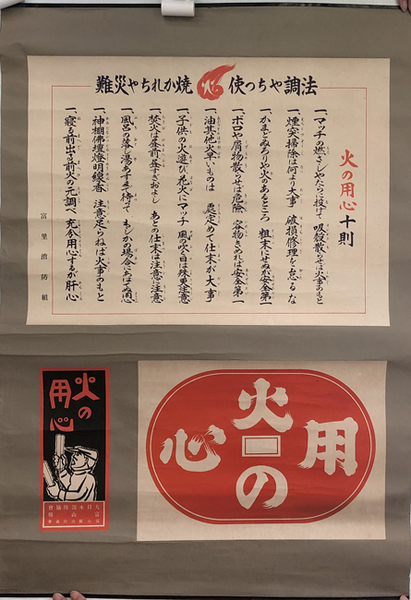 火
使つちや調法
燒かれちや災難
火の用心十則
一、マッチの燃えさしやたらに投げて 吸殻散らせば火事のもと
一、煙突掃除は何より大事 破損修理を怠るな
一、かまどゐろりや火のあるところ 粗末にせぬが安全第一
一、ボロや屑物散らせば危険 容物きめれば安全第一
一、油其他火早いものは 處定めて仕末が大事
一、子供の火遊び花火にマッチ 風の吹く日は殊更注意
一、焚火は あとの仕末は注意注意
一、風呂の落し湯あすまで待て もしかの場合に 用心
一、神棚佛壇燈明線香 注意足らねば火事のもと
一、寝る前出る前火の元調べ 充分用心するが肝心
富里消防組
火の用心
火の用心